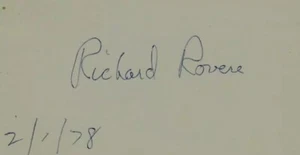 Richard Rovere
2/1/78